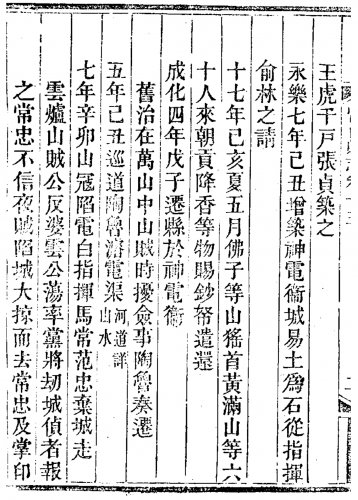 王虎千戶張貞築之
永樂七年己丑增築神電衞城易土爲石從指揮
俞林之請
十七年己亥夏五月佛子等山猺首黃滿山等六
十人來朝貢降香等物賜鈔帑遣還
成化四年戊子遷縣於神電衞
舊治在萬山中山賊時擾僉事陶魯奏遷
五年己丑巡道陶魯濬電渠河道詳山水
七年辛卯山寇陷電白指揮馬常范忠棄城走
雲爐山賊公反婆雲公蕩率黨將刼城偵者報
之常忠不信夜賊陷城大掠而去常忠及掌印